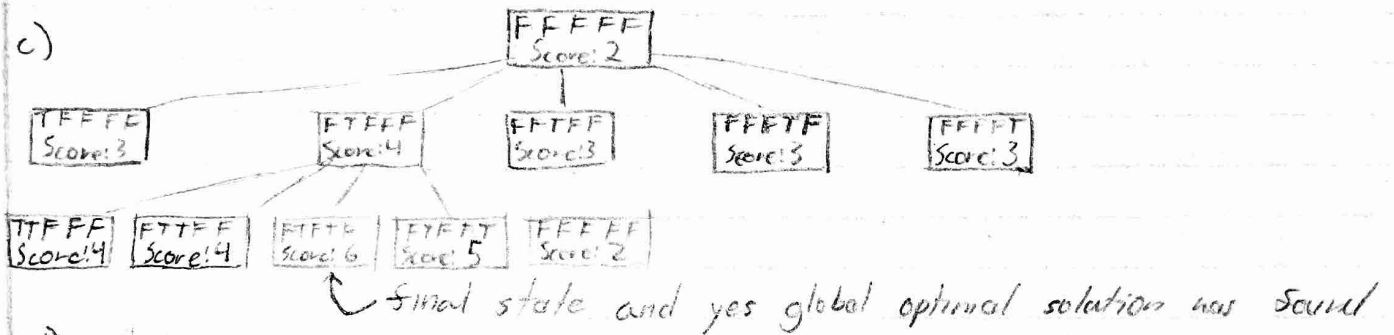 c)
F F F F F
Score: 2
T F F F F
Score: 3
F T F F F
Score: 4
F F T F F
Score: 3
F F F T F
Score: 3
F F F F T
Score: 3
T T F F F
Score: 4
F T T F F
Score: 4
F T F T F
Score: 6
F T F F T
Score: 5
F F F F F
Score: 2
final state and yes global optimal solution was found